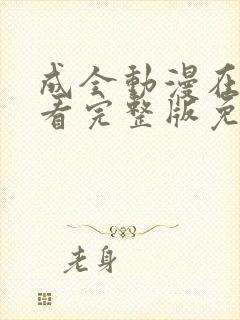 成全動漫在
看完整版免
老身